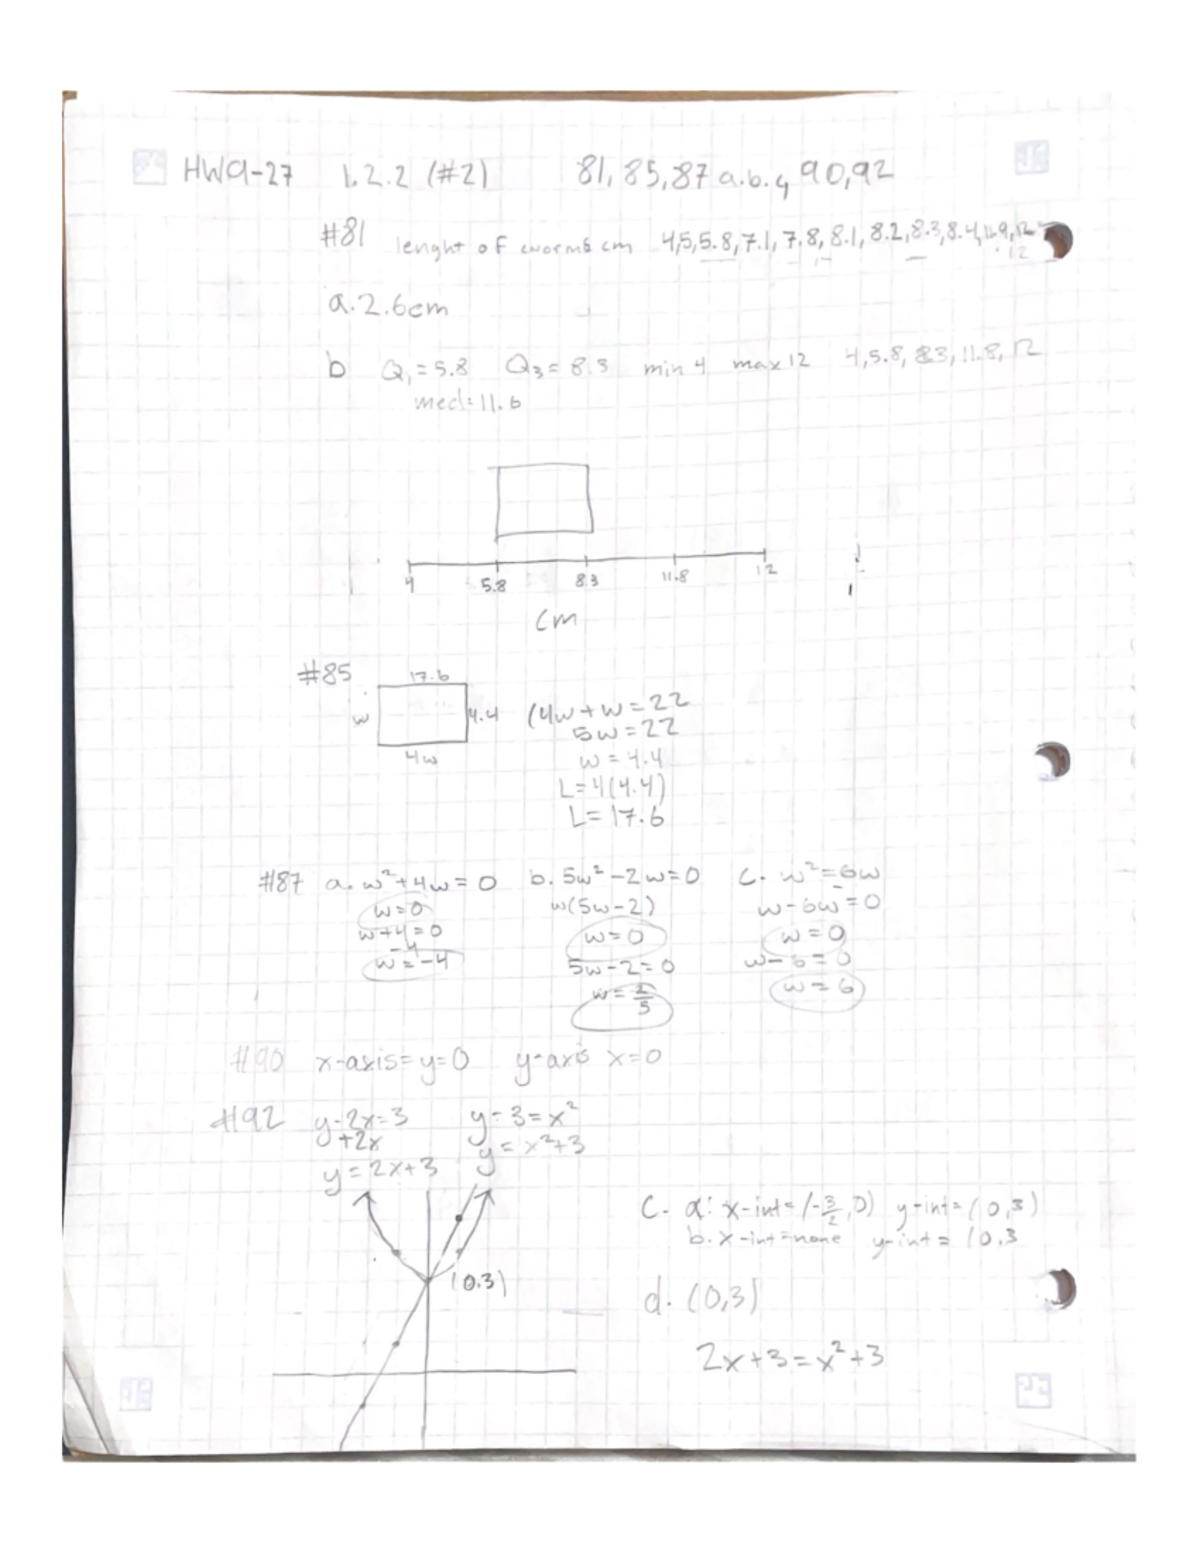 HW9-27 1.2.2 (#2) 81,85,87 a.b.c, 90,92
#81 lenght of worms cm 4,5,5.8,7.1,7.8,8.1,8.2,8.3,8.4,
12
a. 2.6cm
b Q₁=5.8 Q₃=8.3 min 4 max 12 4,5.8,8.3,11.8,12
med=11.6
4 5.8 8.3 11.8 12
cm
#85 17.6
w 4.4 (4w+w=22
5w=22
4w w=4.4
L=4(4.4)
L=17.6
#87 a. w²+4w=0 b. 5w²-2w=0 c. w²=6w
w=0 w(5w-2) w-6w=0
w+4=0 w=0 w=0
-4
w=-4 5w-2=0 w-6=0
w=2/5 w=6
#90 x-axis=y=0 y-axis x=0
#92 y-2x=3 y-3=x²
+2x y=x²+3
y=2x+3
c. a: x-int=(-3/2,0) y-int=(0,3)
b. x-int=none y-int=(0,3
(0,3) d. (0,3)
2x+3=x²+3